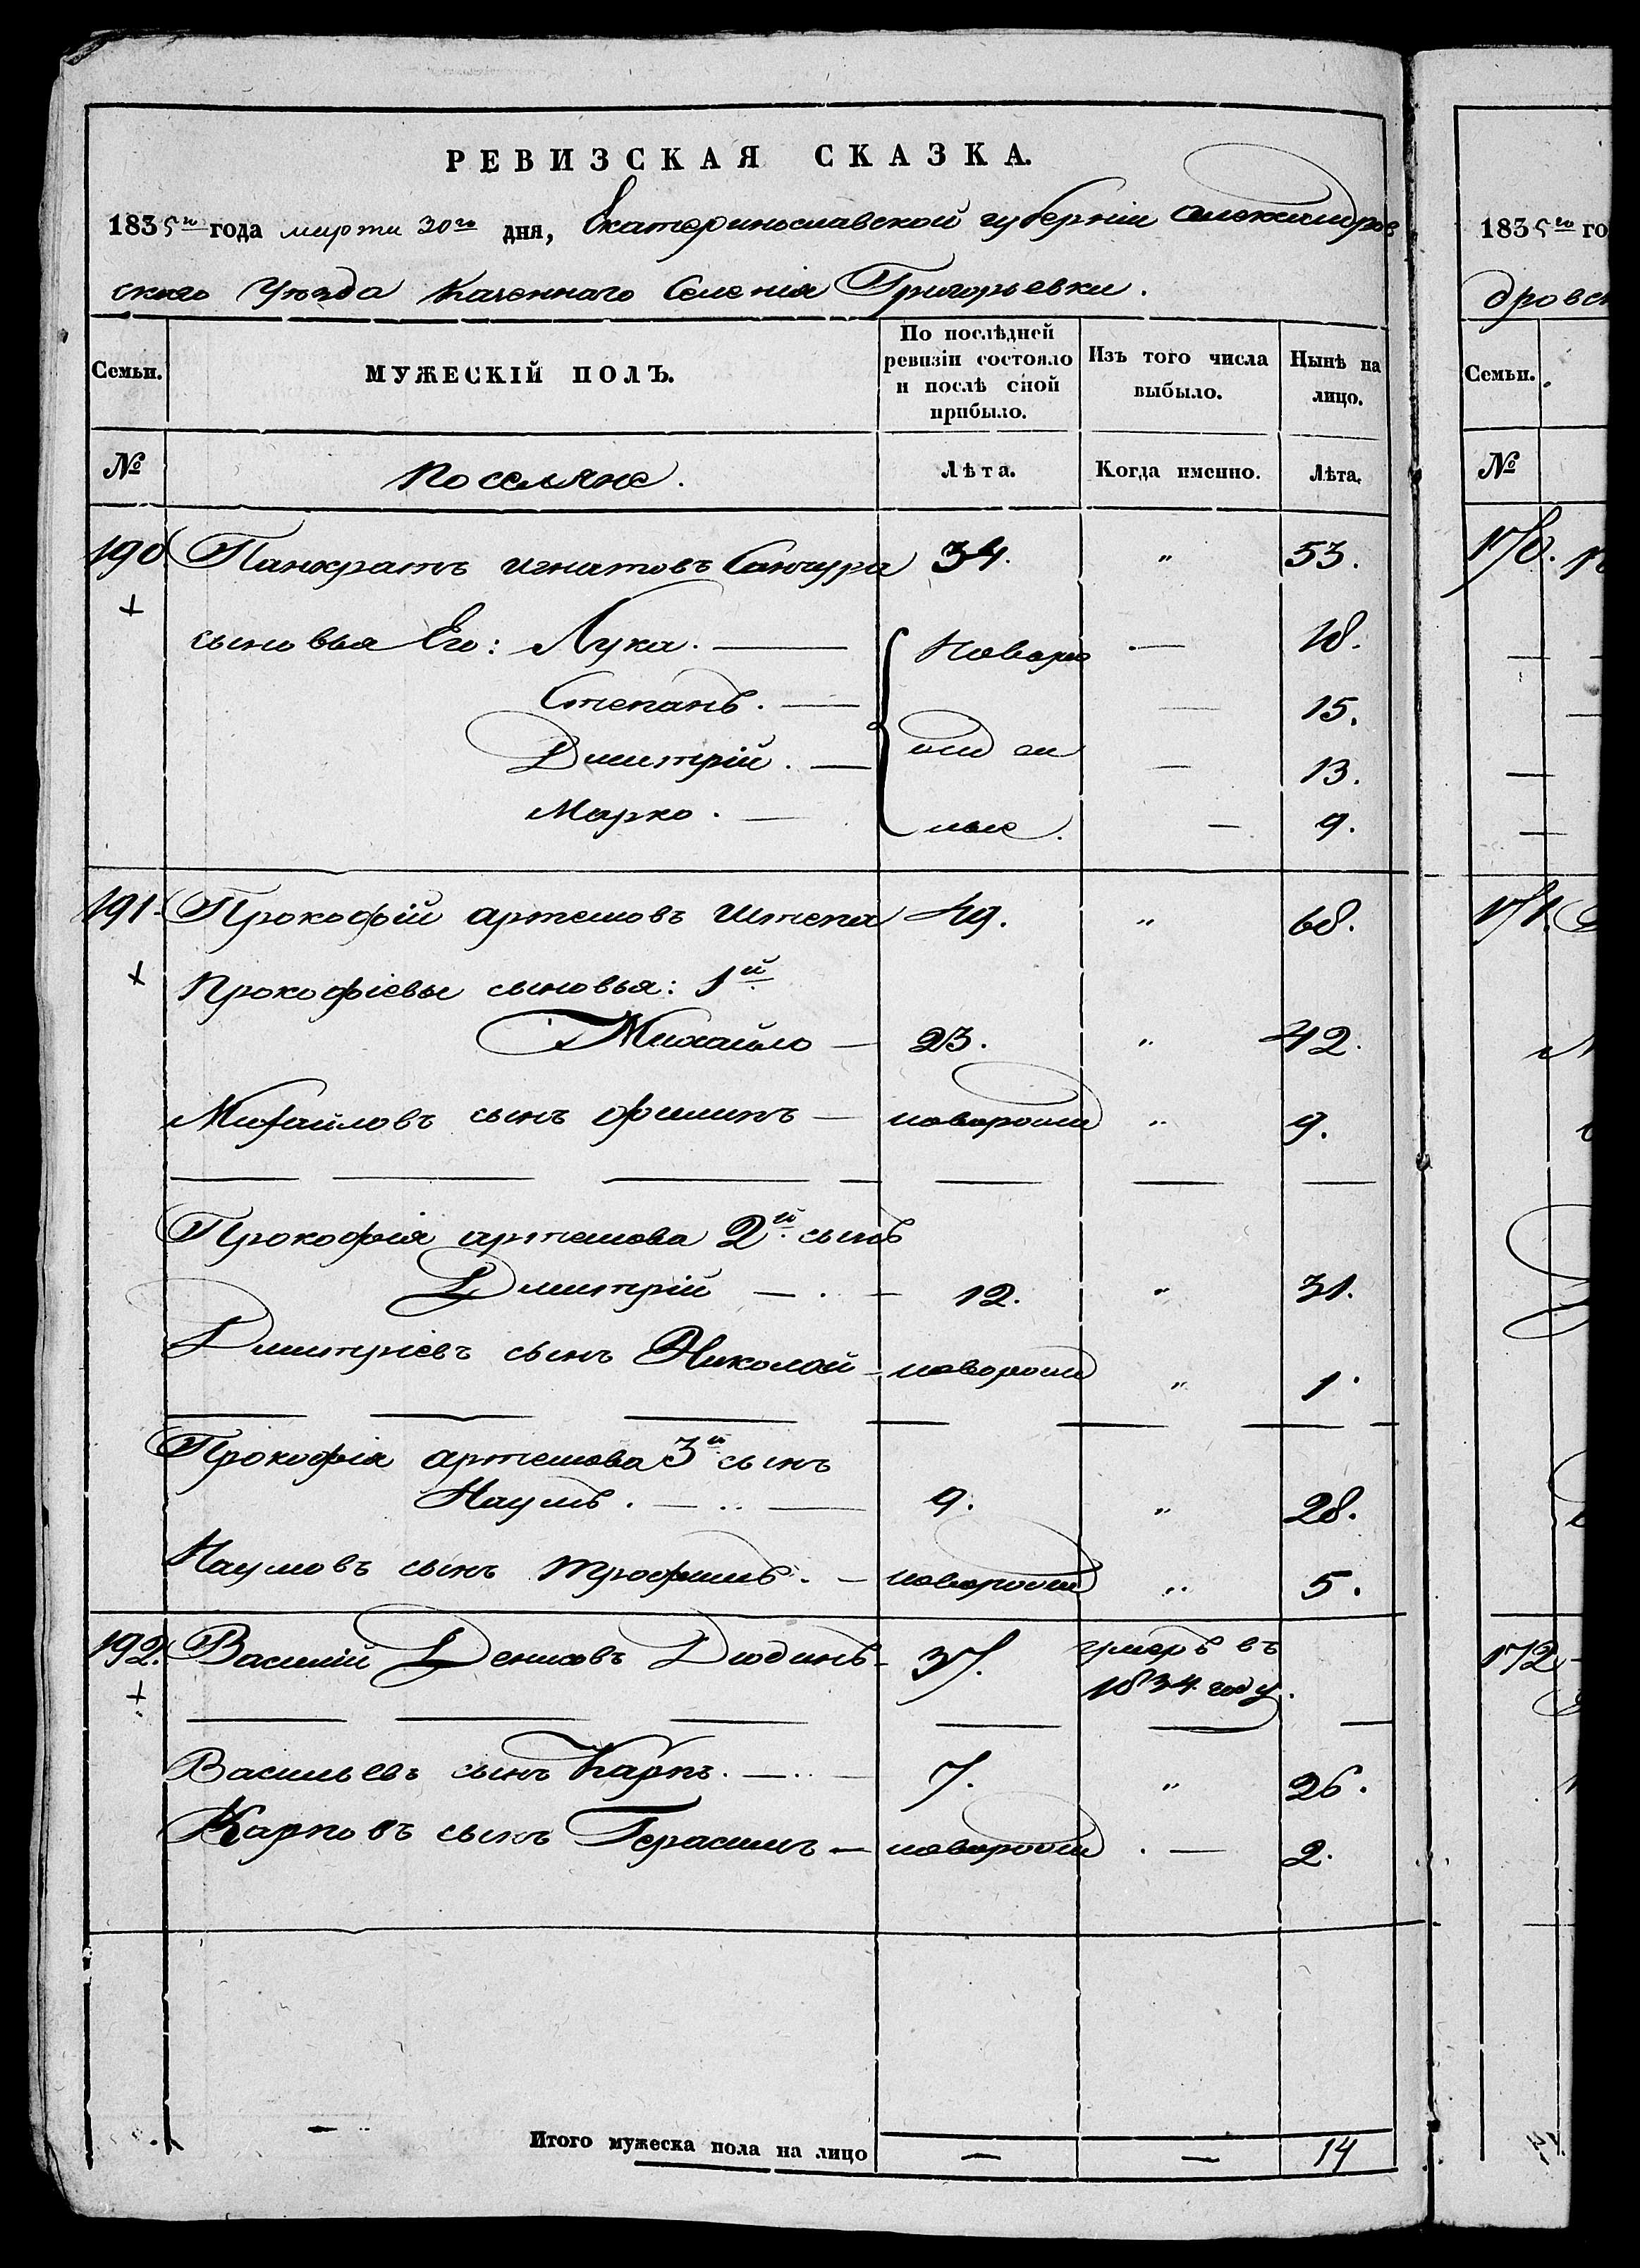 РЕВИЗСКАЯ СКАЗКА.
1835го года марта 30го дня, Екатеринославской губерніи Александров
ского Уѣзда Казеннаго Селенія Григорьевки.
Семьи. МУЖЕСКІЙ ПОЛЪ. По послѣдней ревизіи состояло и послѣ оной прибыло. Изъ того числа выбыло. Нынѣ на лицо.
№ Поселяне. Лѣта. Когда именно. Лѣта.
190 Панкратъ Игнатовъ 34. „ 53.
сыновья Его: Лука. — Новоро — 18.
Степанъ. — — 15.
Дмитрій. — жден — 13.
Марко. — ные. — 9.
191. Прокофій артемовъ Штепа 49. „ 68.
Прокофіевы сыновья: 1й
Михайло — 23. „ 42.
Михайловъ сынъ Филипъ — новорожд „ 9.
Прокофія артемова 2й сынъ
Дмитрій — 12. „ 31.
Дмитріевъ сынъ Николай — новорожд „ 1.
Прокофія артемова 3й сынъ
Наумъ. — 9. „ 28.
Наумовъ сынъ Трофимъ. — новорожд „ 5.
192. Василій Денисовъ Дюдинъ 37. умеръ въ
1834 году.
Васильевъ сынъ Карпъ. — 7. „ 26.
Карповъ сынъ Герасимъ — новорожд — 2.
Итого мужеска пола на лицо — — 14
1835го го
дровс
Семьи.
№
170.
171.
172